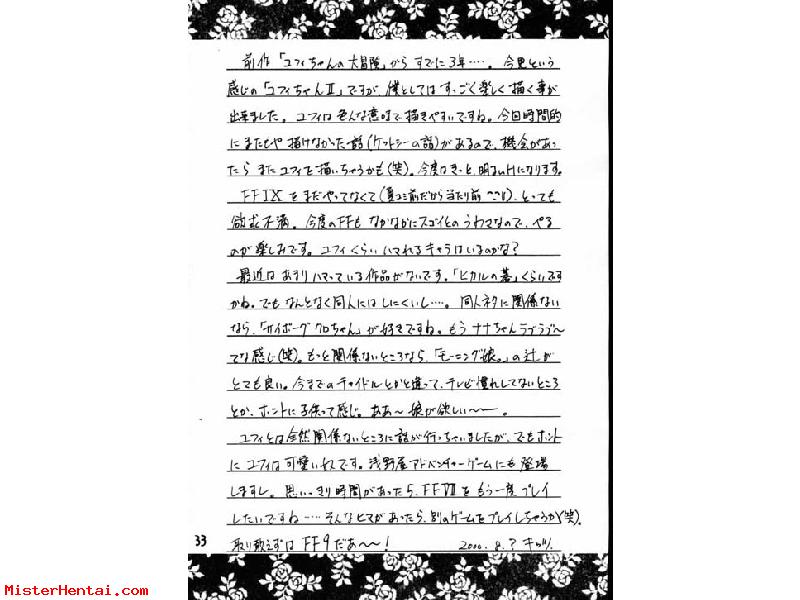 前作「ユフィちゃんの大冒険」からすでに3年‥‥。今更という
感じの「ユフィちゃんⅡ」ですが、僕としてはすっごく楽しく描く事が
出来ました。ユフィは色んな意味で描きやすいですね。今回時間的
にまたもや描けなかった話(ケットシーの話)があるので、機会があっ
たらまたユフィを描いちゃうかも(笑)。今度はきっと、明るいHになります。
FFⅨをまだやってなくて(夏コミ前だから当たり前^^;)、とっても
欲求不満。今度のFFもなかなかにスゴイとのうわさなので、やる
のが楽しみです。ユフィくらいハマれるキャラはいるのかな?
最近はあまりハマっている作品がないです。「ヒカルの碁」くらいです
かね。でもなんとなく同人にはしにくいし‥‥。同人ネタに関係ない
なら、「サイボーグクロちゃん」が好きですね。もうナナちゃんラブラブ〜
てな感じ(笑)。もっと関係ないところなら、「モーニング娘。」の辻が
とても良い。今までのチャイドルとかと違って、テレビ慣れしてないところ
とか、ホントに子供って感じ。ああ〜娘が欲しい〜〜。
ユフィとは全然関係ないところに話が行っちゃいましたが、でもホント
にユフィは可愛いんです。浅野屋アドベンチャーゲームにも登場
しますし。思いっきり時間があったら、FFⅦをもう一度プレイ
したいですね‥‥そんなヒマがあったら、別のゲームをプレイしちゃうか(笑)。
取り敢えずはFF9だあ〜〜!
2000.8.?
33
MisterHentai.com